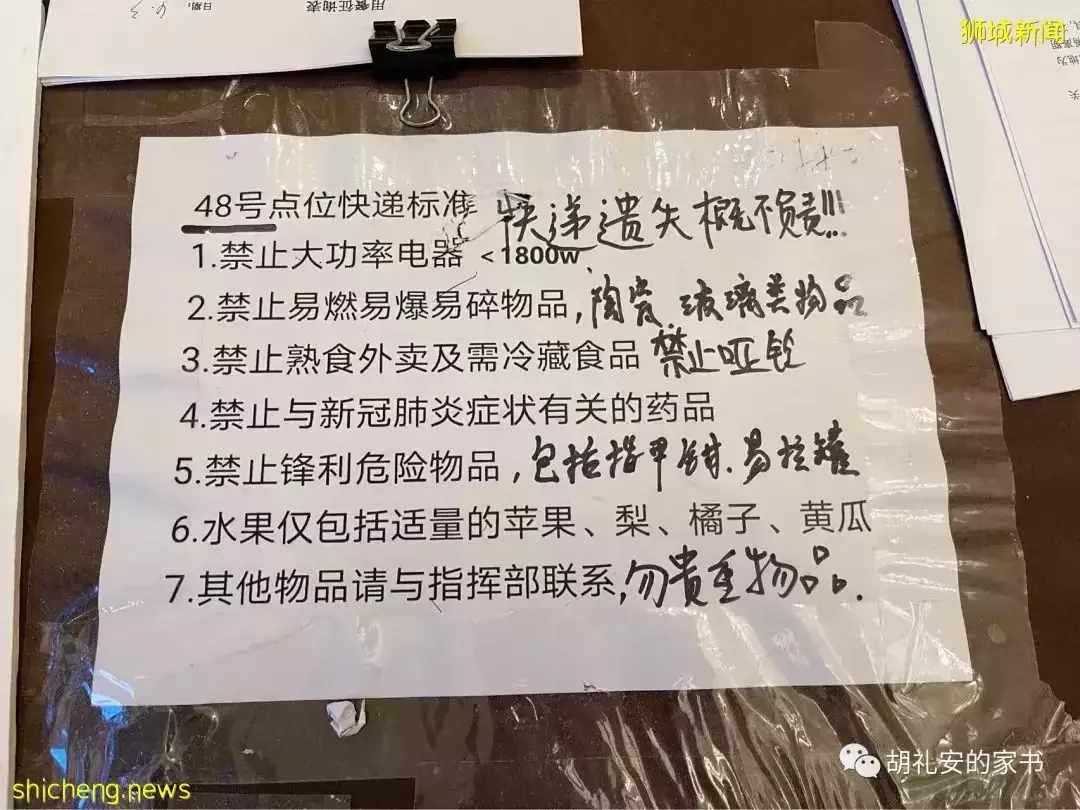 用餐征询表 日期:
狮城新闻
48号点位快递标准 快递遗失概不负责!!!
1.禁止大功率电器 <1800w
2.禁止易燃易爆易碎物品,陶瓷.玻璃类物品
3.禁止熟食外卖及需冷藏食品 禁止哑铃
4.禁止与新冠肺炎症状有关的药品
5.禁止锋利危险物品,包括指甲钳.易拉罐
6.水果仅包括适量的苹果、梨、橘子、黄瓜
7.其他物品请与指挥部联系,勿貴重物品.
胡礼安的家书
shicheng.news